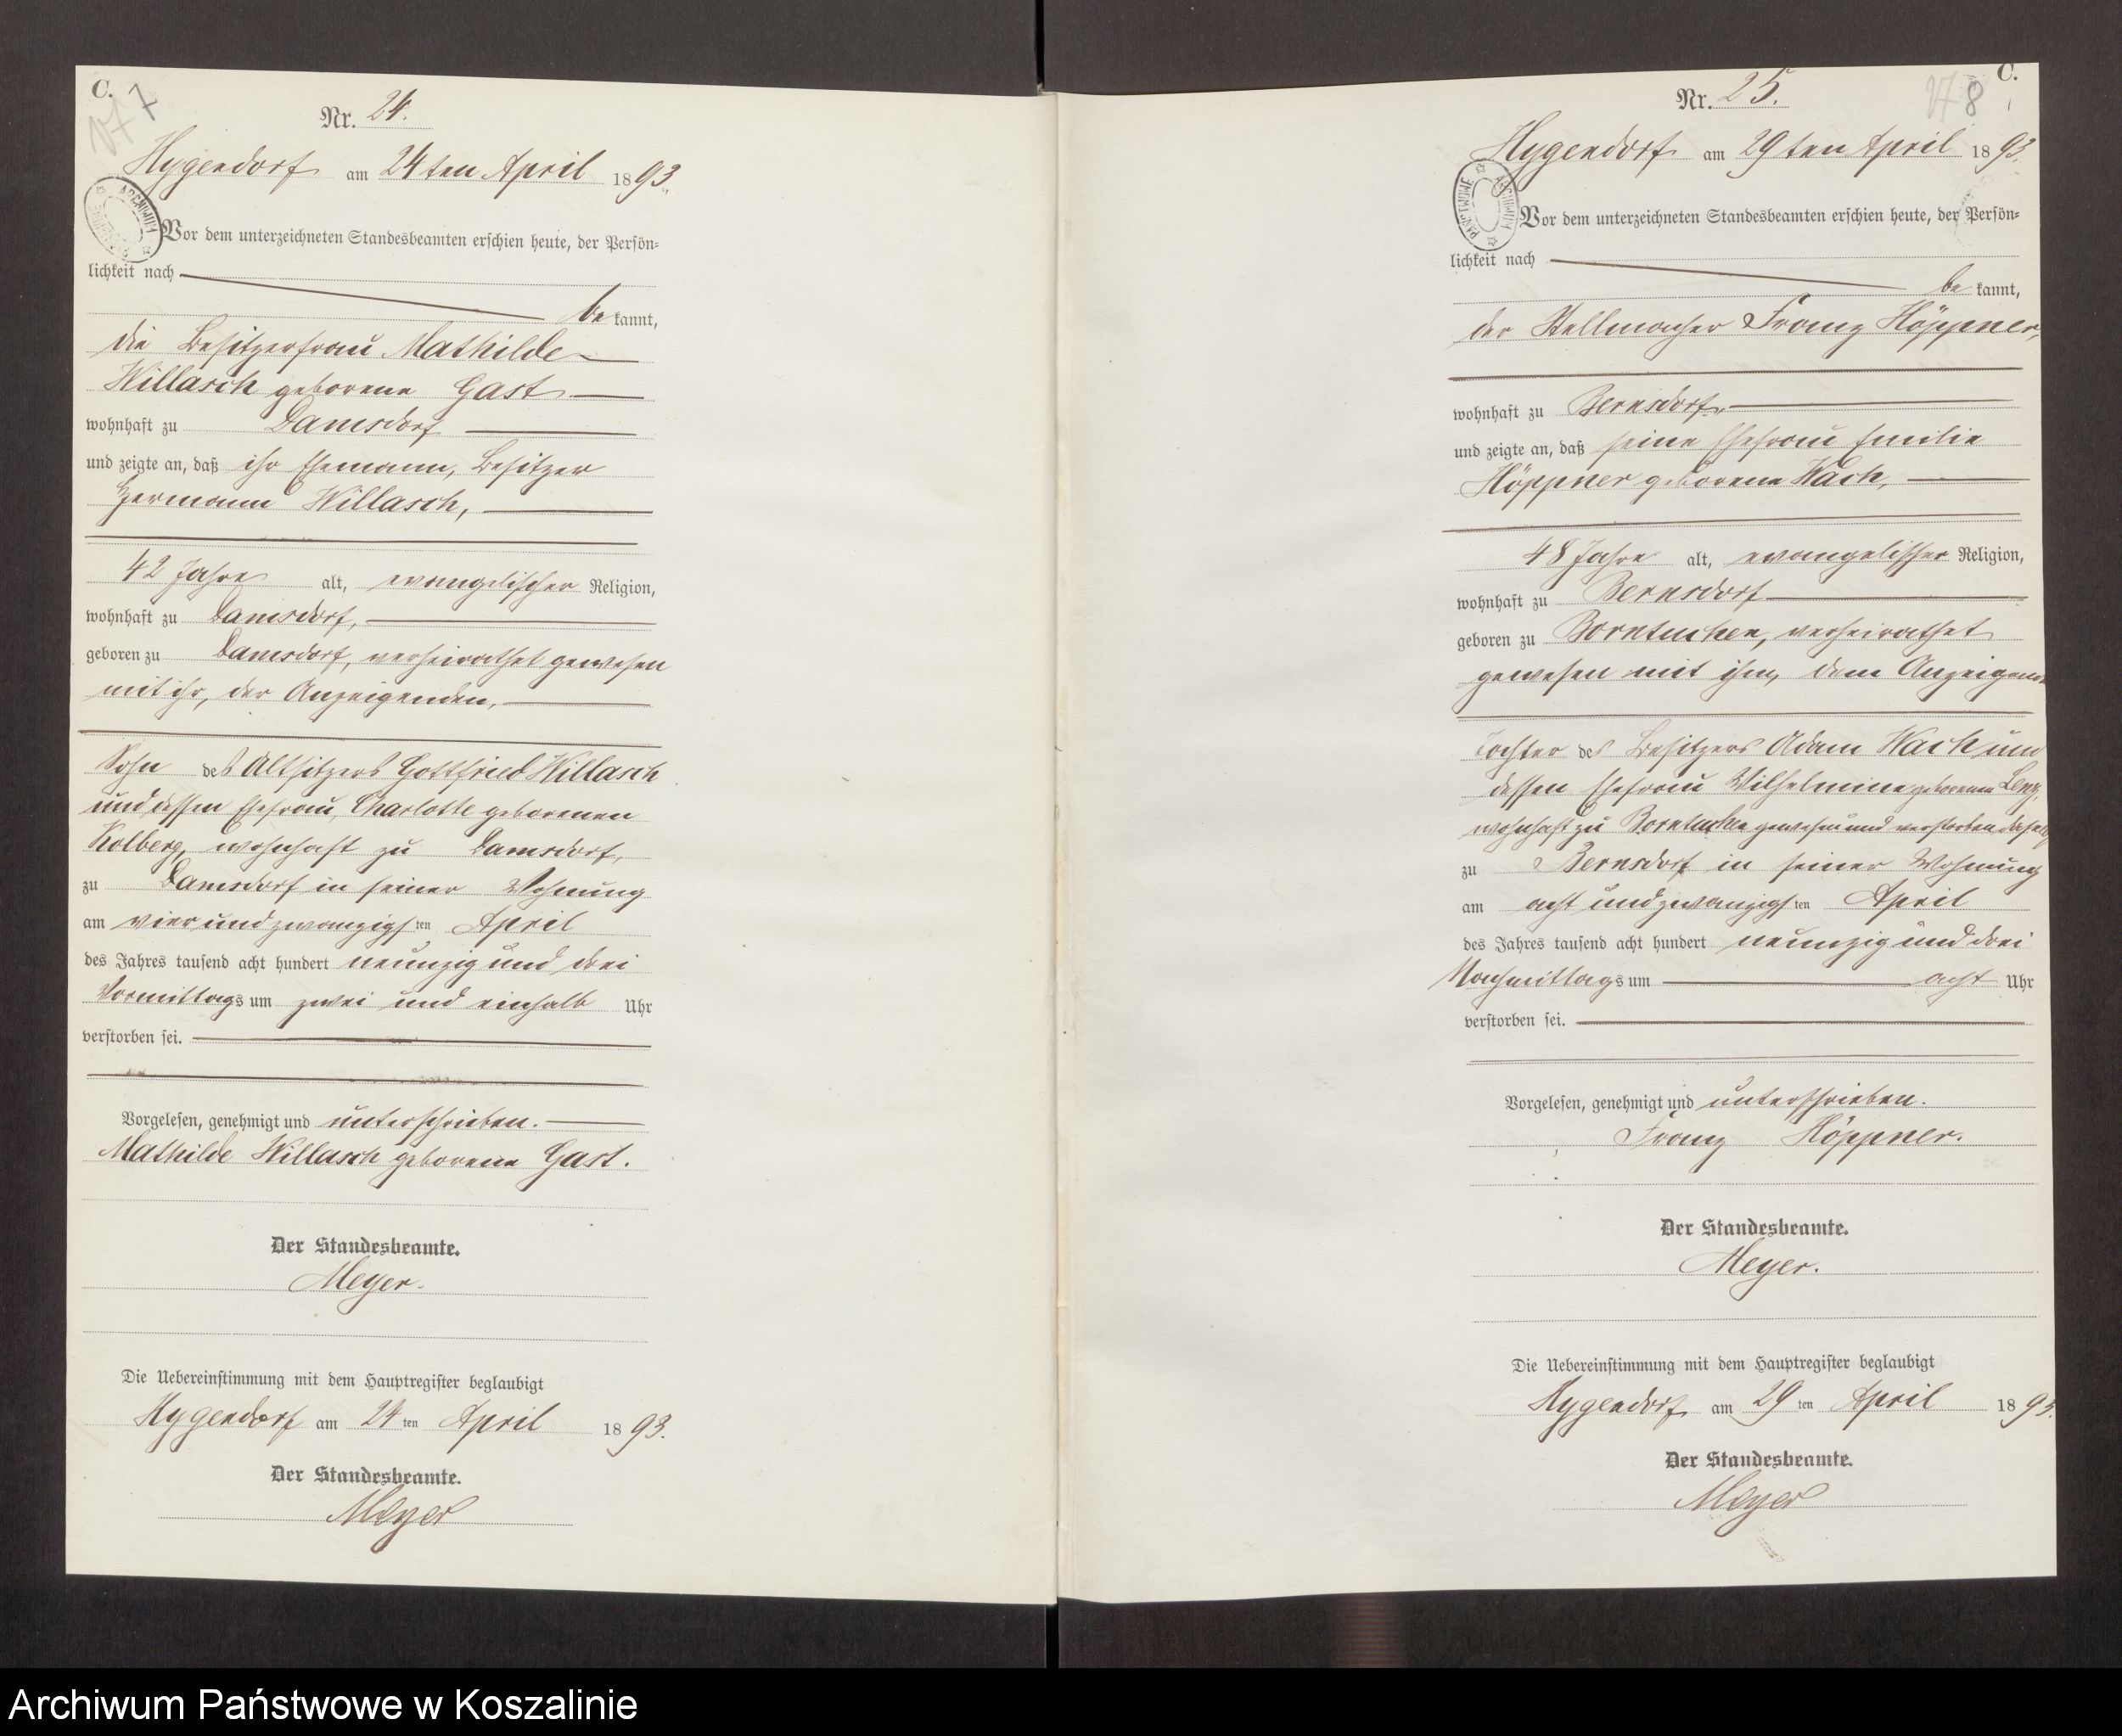 C.
7
Nr. 24.
Hygendorf am 24ten April 1893.
Vor dem unterzeichneten Standesbeamten erschien heute, der Persön-
lichkeit nach
be kannt,
die Besitzerfrau Mathilde
Willasch geborene Gast
wohnhaft zu Damsdorf
und zeigte an, daß ihr Ehemann, Besitzer
Hermann Willasch,
42 Jahre alt, evangelischer Religion,
wohnhaft zu Damsdorf,
geboren zu Damsdorf, verheirathet gewesen
mit ihr, der Anzeigenden,
Sohn des Altsitzers Gottfried Willasch
und dessen Ehefrau, Charlotte geborenen
Kolberg, wohnhaft zu Damsdorf,
zu Damsdorf in seiner Wohnung
am vier und zwanzigsten April
des Jahres tausend acht hundert neunzig und drei
Vormittags um zwei und einhalb Uhr
verstorben sei.
Vorgelesen, genehmigt und unterschrieben.
Mathilde Willasch geborene Gast.
Der Standesbeamte.
Meyer.
Die Uebereinstimmung mit dem Hauptregister beglaubigt
Hygendorf am 24 ten April 1893.
Der Standesbeamte.
Meyer
C.
8
Nr. 25.
Hygendorf am 29ten April 1893.
Vor dem unterzeichneten Standesbeamten erschien heute, der Persön-
lichkeit nach
be kannt,
der Stellmacher Franz Höppner,
wohnhaft zu Bernsdorf
und zeigte an, daß seine Ehefrau Emilie
Höppner geborene Wach,
48 Jahre alt, evangelischer Religion,
wohnhaft zu Bernsdorf
geboren zu Borntuchen, verheirathet
gewesen mit ihm, dem Anzeigenden
Tochter des Besitzers Adam Wach und
dessen Ehefrau Wilhelmine geborenen
wohnhaft zu Borntuchen gewesen und verstorben daselbst
zu Bernsdorf in seiner Wohnung
am acht und zwanzigsten April
des Jahres tausend acht hundert neunzig und drei
Nachmittags um acht Uhr
verstorben sei.
Vorgelesen, genehmigt und unterschrieben.
Franz Höppner.
Der Standesbeamte.
Meyer.
Die Uebereinstimmung mit dem Hauptregister beglaubigt
Hygendorf am 29 ten April 1893.
Der Standesbeamte.
Meyer
Archiwum Państwowe w Koszalinie